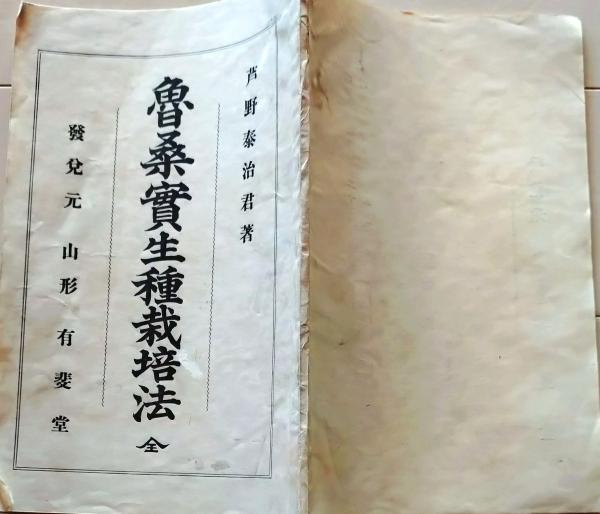 芦野泰治君著
魯桑實生種栽培法 全
發兌元 山形 有斐堂